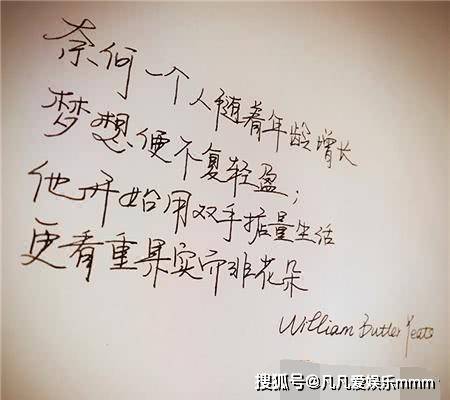 奈何一个人随着年龄增长
梦想便不复轻盈；
他开始用双手掂量生活
更看重果实而非花朵
William Butler Yeats
搜狐号@几几爱娱乐mmm